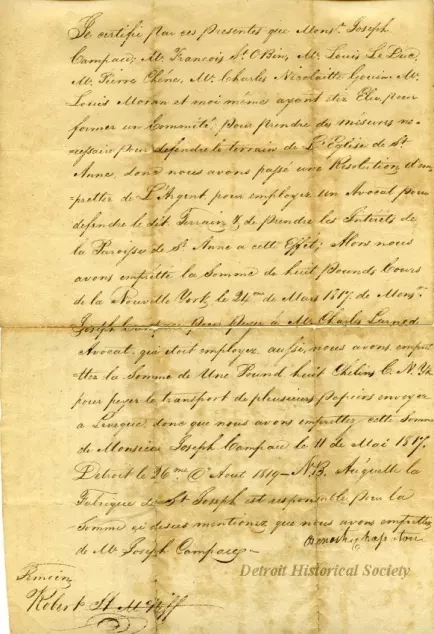 Je certifie par ces presentes que Monsr. Joseph
Campau, Mr. Francois St. Obin, Mr. Louis Le Duc,
Mr. Pierre Chêne, Mr. Charles Nicolaitte Gouin, Mr.
Louis Moran et moi même ayant été Elu pour
former un Committé, pour prendre des mesures ne-
cessaire pour defendre le terrain de L'Eglise de St
Anne, donc nous avons passé une Resolution d'em
=pretter de L'Argent pour employer un Avocat pour
defendre le dit Terrain & de prendre les Intérêts de
la Paroisse de St. Anne a cette Effet; Alors nous
avons empretté la Somme de huit Pounds Cours
de la Nouvelle York, le 24me de Mars 1817. de Monsr.
Joseph Campau pour payer à Mr. Charles Larned
Avocat, qui étoit employez aussi, nous avons empret
=ttez la Somme de Une Pound huit Chelins C. N. Yk
pour payer le transport de plusieurs Papiers envoyez
a donc que nous avons emprettez cette Somme
de Monsieur Joseph Campau le 11 de Mai 1817.
Detroit le 26me. d'Aout 1819 – N.B. Auquelle la
Fabrique de St Joseph est responsible pour la
Somme ci desus mentionez que nous avons emprettez
de Mr. Joseph Campau –
Temoin
Robert
Detroit Historical Society